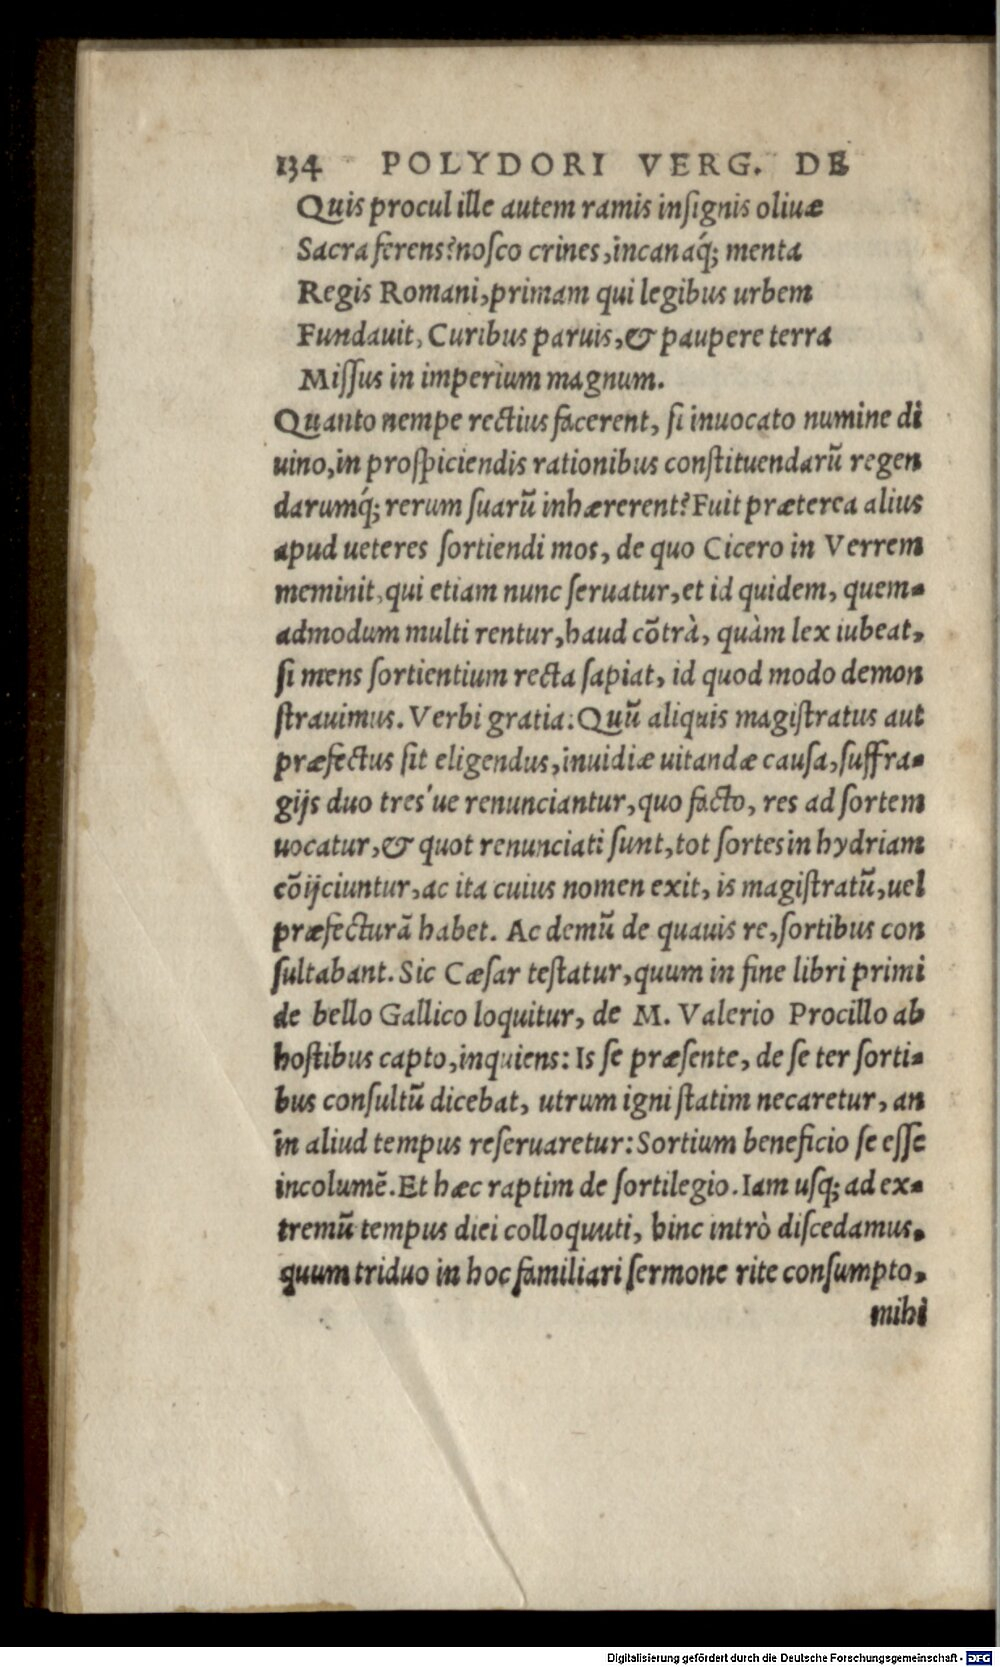 134 POLYDORI VERG. DE
Quis procul ille autem ramis inſignis oliuæ
Sacra ferens? noſco crines, incanaq́; menta
Regis Romani, primam qui legibus urbem
Fundauit, Curibus paruis, & paupere terra
Miſſus in imperium magnum.
Quanto nempe rectius facerent, ſi inuocato numine di
uino, in proſpiciendis rationibus conſtituendarū regen
darumq́; rerum ſuarū inhærerent? Fuit præterea alius
apud ueteres ſortiendi mos, de quo Cicero in Verrem
meminit, qui etiam nunc ſeruatur, et id quidem, quem-
admodum multi rentur, haud cõtrà, quàm lex iubeat,
ſi mens ſortientium recta ſapiat, id quod modo demon
ſtrauimus. Verbi gratia: Quū aliquis magiſtratus aut
præfectus ſit eligendus, inuidiæ uitandæ cauſa, ſuffra-
gijs duo tres'ue renunciantur, quo facto, res ad ſortem
uocatur, & quot renunciati ſunt, tot ſortes in hydriam
cõijciuntur, ac ita cuius nomen exit, is magiſtratū, uel
præfecturã habet. Ac demū de quauis re, ſortibus con
ſultabant. Sic Cæſar teſtatur, quum in fine libri primi
de bello Gallico loquitur, de M. Valerio Procillo ab
hoſtibus capto, inquiens: Is ſe præſente, de ſe ter ſorti-
bus conſultū dicebat, utrum igni ſtatim necaretur, an
in aliud tempus reſeruaretur: Sortium beneficio ſe eſſe
incolumẽ. Et hæc raptim de ſortilegio. Iam uſq; ad ex-
tremū tempus diei colloquuti, hinc intrò diſcedamus.
quum triduo in hoc familiari ſermone rite conſumpto,
mihi
Digitalisierung gefördert durch die Deutsche Forschungsgemeinschaft - DFG